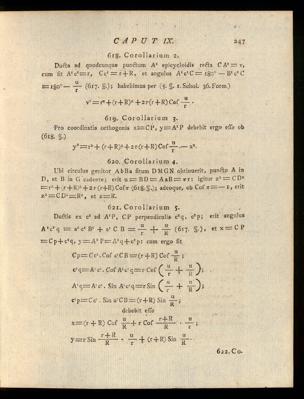 CAPUT IX. 247
618. Corollarium 2.
Ducta ad quodcunque punctum A° epicycloidis recta CA°=v,
cum sit A°c°=r, Cc°=r+R, et angulus A°c°C=180°-B°c°C
=180°-u/r (617. §.); habebimus per (5. §. 1. Schol. 36. Form.)
v²=r²+(r+R)²+2r(r+R)Cos u/r.
619. Corollarium 3.
Pro coordinatis orthogonis x=CP, y=A°P debebit ergo esse ob
(618. §.)
y²=r²+(r+R)²+2r(r+R)Cos u/r-x².
620. Corollarium 4.
Ubi circulus genitor AbBa situm DMGN obtinuerit, puncto A in
D, et B in G cadente; erit u=BD=AaB=πr: igitur v²=CD²
=r²+(r+R)²+2r(r+R)Cosπ (618.§.); adeoque, ob Cosπ=-1, erit
v²=CD²=R², et v=R.
621. Corollarium 5.
Ductis ex c° ad A°P, CP perpendiculis c°q, c°p; erit angulus
A°c°q = a°c°B° + c°CB = u/r + u/R (617. §.), et x=CP
=Cp+c°q, y=A°P=A°q+c°p: cum ergo sit
Cp=Cc°.Cos c°CB=(r+R)Cos u/R;
c°q=A°c°.Cos A°c°q=r Cos(u/r+u/R);
A°q=A°c°.Sin A°c°q=r Sin(u/r+u/R);
c°p=Cc°.Sin c°CB=(r+R)Sin u/R;
debebit esse
x=(r+R)Cos u/R+r Cos r+R/R·u/r;
y=r Sin r+R/R·u/r+(r+R)Sin u/R.
622. Co-